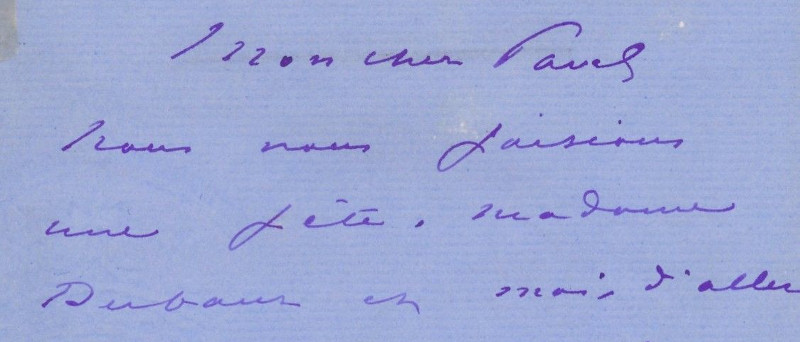 Mon cher Paul
nous nous faisions
une fête, madame
et moi, d'aller